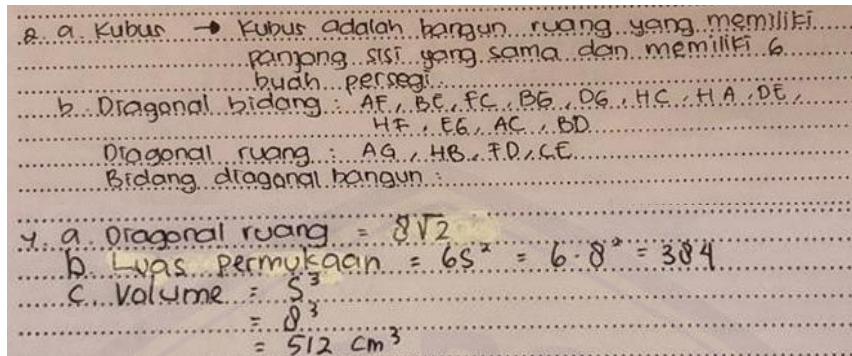 2. a. Kubus → Kubus adalah bangun ruang yang memiliki
panjang sisi yang sama dan memiliki 6
buah persegi.
b. Diagonal bidang : AF, BE, FC, BG, DG, HC, HA, DE,
HF, EG, AC, BD
Diagonal ruang : AG, HB, FD, CE
Bidang diagonal bangun :
4. a. Diagonal ruang = 8√2
b. Luas permukaan = 6S² = 6 · 8² = 384
c. Volume = S³
= 8³
= 512 cm³